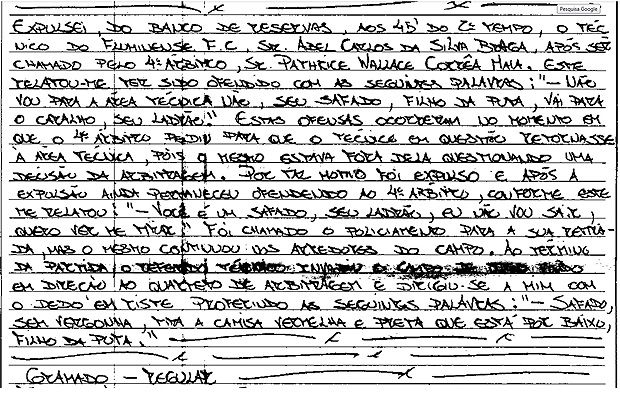 Pesquisa Google
EXPULSEI, DO BANCO DE RESERVAS, AOS 45' DO 2º TEMPO, O TÉC-
NICO DO FLUMINENSE F.C, SR. ABEL CARLOS DA SILVA BRAGA, APÓS SER
CHAMADO PELO 4º ÁRBITRO, SR. PATHRICE WALLACE CORRÊA MAIA. ESTE
RELATOU-ME TER SIDO OFENDIDO COM AS SEGUINTES PALAVRAS: "- NÃO
VOU PARA A ÁREA TÉCNICA NÃO, SEU SAFADO, FILHO DA PUTA, VAI PARA
O CARALHO, SEU LADRÃO." ESTAS OFENSAS OCORRERAM NO MOMENTO EM
QUE O 4º ÁRBITRO PEDIU PARA QUE O TÉCNICO EM QUESTÃO RETORNASSE
À ÁREA TÉCNICA, POIS O MESMO ESTAVA FORA DELA QUESTIONANDO UMA
DECISÃO DA ARBITRAGEM. POR TAL MOTIVO FOI EXPULSO E APÓS A
EXPULSÃO AINDA PERMANECEU OFENDENDO AO 4º ÁRBITRO, CONFORME ESTE
ME RELATOU: "- VOCÊ É UM SAFADO, SEU LADRÃO, EU NÃO VOU SAIR,
QUERO VER ME TIRAR." FOI CHAMADO O POLICIAMENTO PARA A SUA RETIRA-
DA, MAS O MESMO CONTINUOU NOS ARREDORES DO CAMPO. AO TÉRMINO
DA PARTIDA O REFERIDO TÉCNICO INVADIU O CAMPO DE
EM DIREÇÃO AO QUARTETO DE ARBITRAGEM E DIRIGIU-SE A MIM COM
O DEDO EM RISTE PROFERINDO AS SEGUINTES PALAVRAS: "- SAFADO,
SEM VERGONHA, TIRA A CAMISA VERMELHA E PRETA QUE ESTÁ POR BAIXO,
FILHO DA PUTA."
GRAMADO - REGULAR